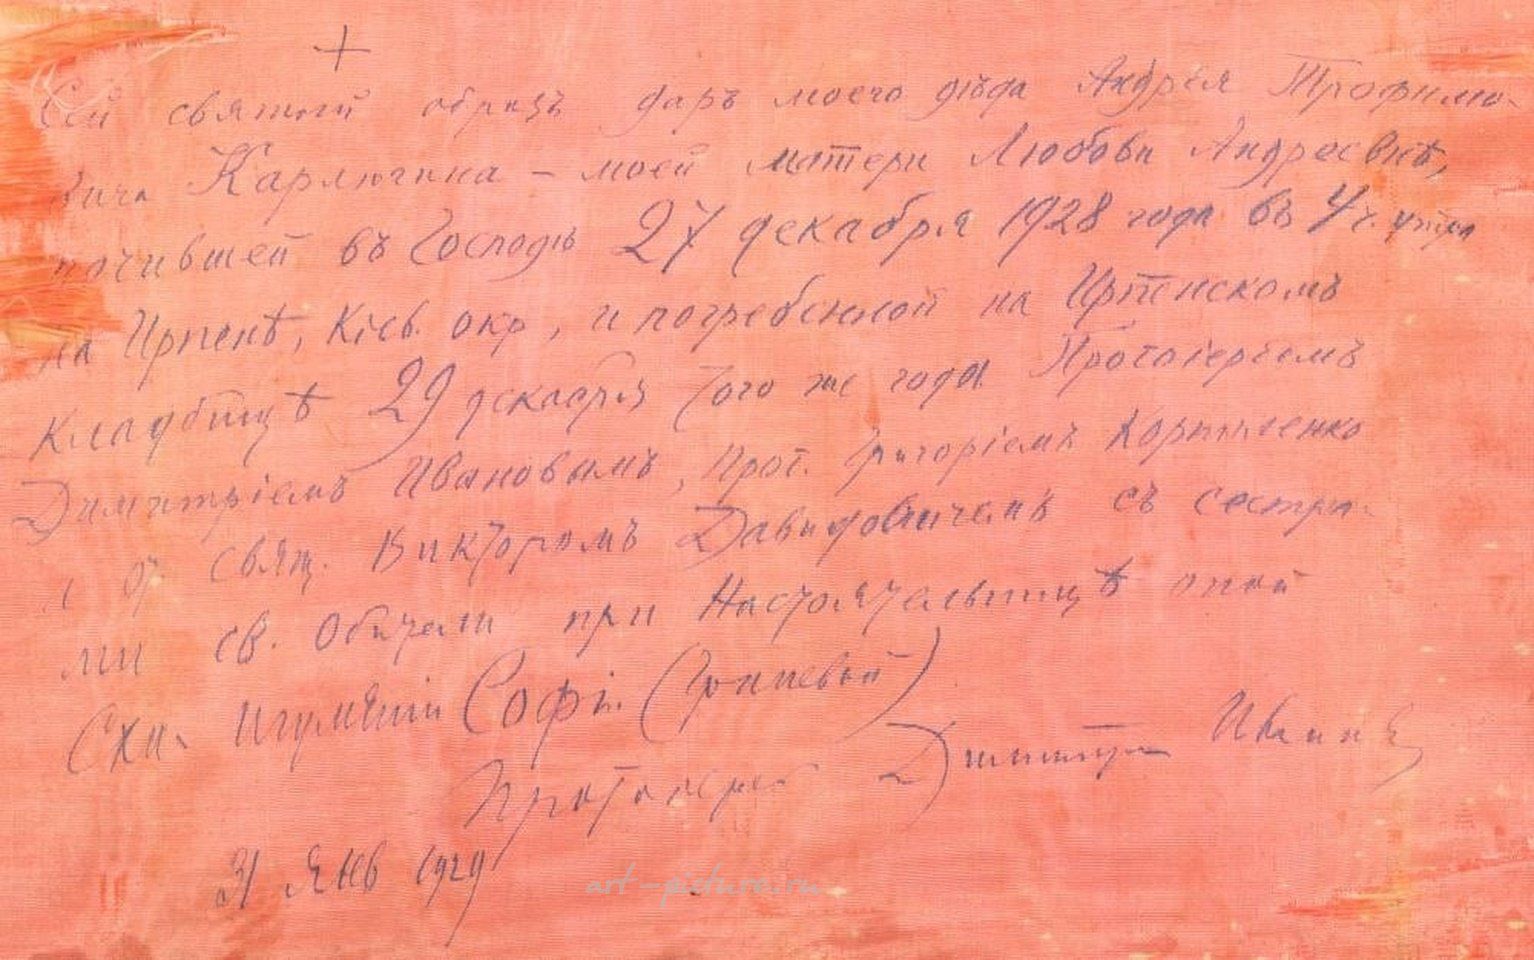 +
Сей святой образъ даръ моего дѣда Андрея Трофимо-
вича Карлюгина – моей матери Любови Андреевнѣ,
почившей въ Господѣ 27 декабря 1928 года въ 4 ч. утра
на Ирпенѣ, Кіев. окр, и погребенной на Ирпенскомъ
Кладбищѣ 29 декабря того же года Протоіереемъ
Димитріемъ Ивановымъ, Прот. Григоріемъ
и свящ. Викторомъ Давидовичемъ съ сестра-
ми св. Обители при Настоятельницѣ оной
Схи- игуменіи Софіи
Протоіерей Димитрій Иванов
31 Янв 1929
art-picture.ru